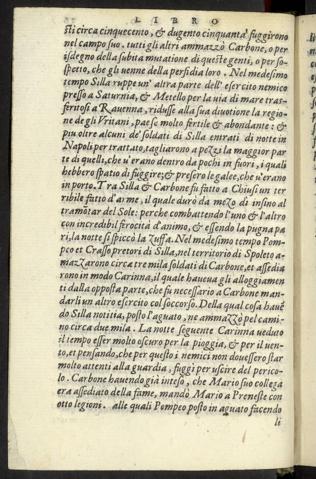 LIBRO
sti circa cinquecento, & dugento cinquanta fuggirono
nel campo suo. tutti gli altri ammazzò Carbone, o per
isdegno della subita mutatione di queste genti, o per so-
spetto, che gli uenne della perfidia loro. Nel medesimo
tempo Silla ruppe un' altra parte dell' esercito nemico
presso a Saturnia, & Metello per la uia di mare tras-
feritosi a Rauenna, ridusse alla sua diuotione la regione
de gli Vritani, paese molto fertile & abondante: &
piu oltre alcuni de' soldati di Silla entrati di notte in
Napoli per trattato, tagliarono a pezzi la maggior par
te di quelli, che u'erano dentro da pochi in fuori, i quali
hebbero spatio di fuggire; & presero le galee, che u'erano
in porto. Tra Silla & Carbone fu fatto a Chiusi un ter
ribile fatto d'arme, il quale durò da mezo di insino al
tramōtar del Sole: perche combattendo l'uno & l'altro
con incredibil ferocità d'animo, & essendo la pugna pa
ri, la notte si spiccò la zuffa. Nel medesimo tempo Pom-
peo et Crasso pretori di Silla, nel territorio di Spoleto a-
mazzarono circa tre mila soldati di Carbone, et assedia
rono in modo Carinna, il quale haueua gli alloggiamen
ti dalla opposta parte, che fu necessario a Carbone man-
darli un altro esercito col soccorso. Della qual cosa hauē
do Silla notitia, posto l'aguato, ne ammazzò pel cami-
no circa due mila. La notte seguente Carinna ueduto
il tempo esser molto oscuro per la pioggia, & per il uen-
to, et pensando, che per questo i nemici non douessero star
molto attenti alla guardia, fuggi per uscire del perico-
lo. Carbone hauendo già inteso, che Mario suo collega
era assediato della fame, mandò Mario a Preneste con
otto legioni. alle quali Pompeo posto in aguato facendo
li